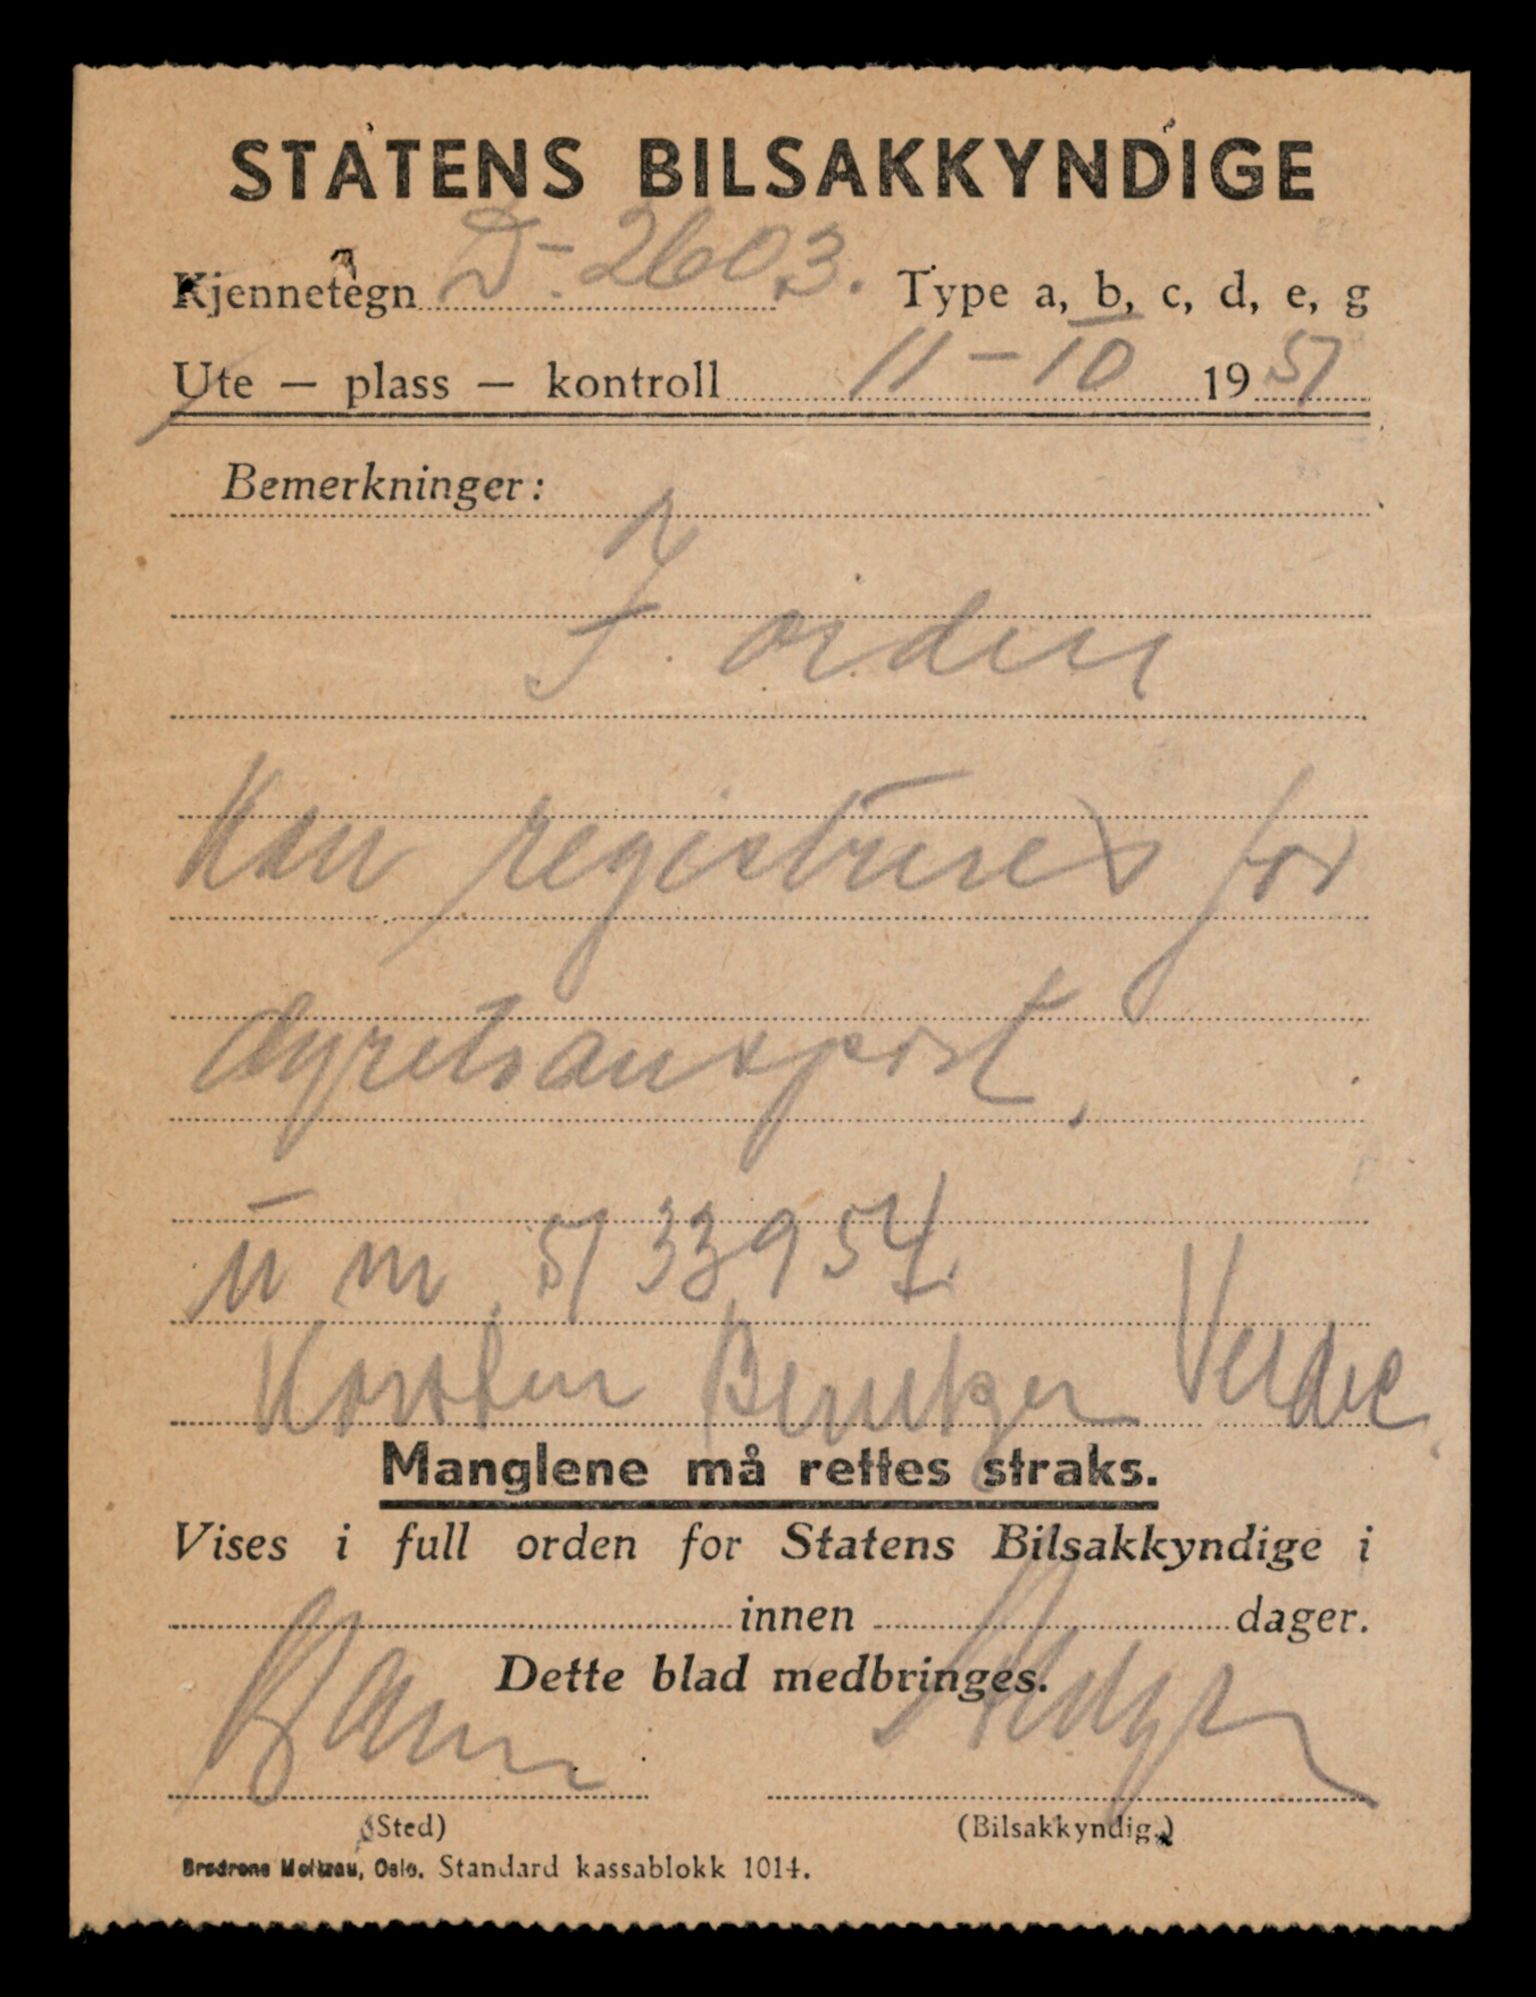 STATENS BILSAKKYNDIGE
Kjennetegn D-2603. Type a, b, c, d, e, g
Ute — plass — kontroll 11-10 1951
Bemerkninger:
I orden
Kan registreres for
dyretransport.
u nr 5133954
Karsten Verdal
Manglene må rettes straks.
Vises i full orden for Statens Bilsakkyndige i
innen dager.
Dette blad medbringes.
Hamar
(Sted) (Bilsakkyndig.)
Brødrene Moltzau, Oslo. Standard kassablokk 1014.